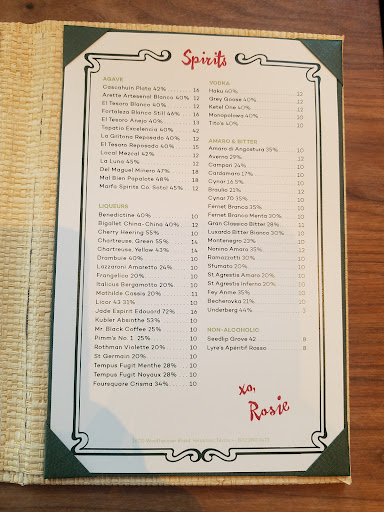 Spirits
AGAVE
Cascahuin Plata 42% 16
Arette Artesenal Blanco 40% 12
El Tesoro Blanco 40% 12
Fortaleza Blanco Still 46% 16
El Tesoro Anejo 40% 13
Tepatio Excelencia 40% 42
La Gritona Reposado 40% 12
El Tesoro Reposado 40% 15
Local Mezcal 42% 12
La Luna 45% 12
Del Maguey Minero 47% 18
Mal Bien Papalote 48% 18
Marfa Spirits Co. Sotol 45% 12
LIQUEURS
Benedictine 40% 10
Bigallet China-China 40% 12
Cherry Heering 55% 10
Chartreuse, Green 55% 14
Chartreuse, Yellow 43% 14
Drambuie 40% 10
Lazzaroni Amaretto 24% 10
Frangelico 20% 10
Italicus Bergamotto 20% 10
Mathilde Cassis 20% 11
Licor 43 31% 10
Jade Espirit Edouard 72% 16
Kubler Absinthe 53% 10
Mr. Black Coffee 25% 10
Pimm's No. 1 25% 10
Rothman Violette 20% 10
St Germain 20% 10
Tempus Fugit Menthe 28% 10
Tempus Fugit Noyaux 28% 10
Foursquare Crisma 34% 10
VODKA
Haku 40% 12
Grey Goose 40% 12
Ketel One 40% 12
Monopolowa 40% 10
Tito's 40% 10
AMARO & BITTER
Amaro di Angostura 35% 10
Averna 29% 10
Campari 24% 10
Cardamaro 17% 10
Cynar 16.5% 10
Braulio 21% 12
Cynar 70 35% 10
Fernet Branca 35% 10
Fernet Branca Menta 30% 10
Gran Classico Bitter 28% 11
Luxardo Bitter Bianco 30% 10
Montenegro 23% 10
Nonino Amaro 35% 12
Ramazzotti 30% 10
Sfumato 20% 10
St Agrestis Amaro 20% 10
St Agrestis Inferno 20% 10
Fey Anme 35% 10
Becherovka 21% 10
Underberg 44% 3
NON-ALCOHOLIC
Seedlip Grove 42 8
Lyre's Apéritif Rosso 8
xo,
Rosie